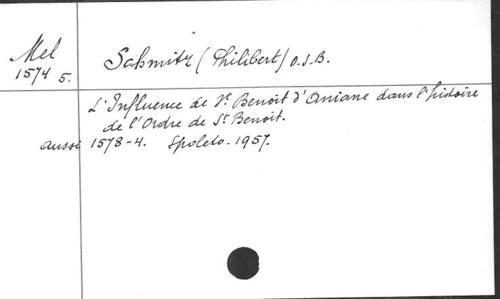 Mel
1574 5.
Schmitz (Philibert) O.S.B.
L'Influence de St. Benoit d'Aniane dans l'histoire
de l'Ordre de St. Benoit.
aussi 1578-4. Spoleto - 1957.